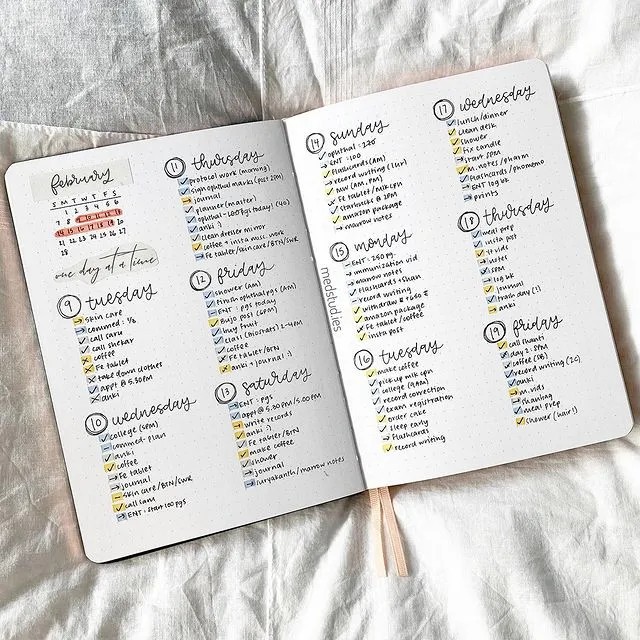 february
S M T W T F S
1 2 3 4 5 6
7 8 9 10 11 12 13
14 15 16 17 18 19 20
21 22 23 24 25 26 27
28
one day at a time
9 tuesday
skin care
commed : 1/8
call caru
call shekar
coffee
Fe tablet
take down clothes
appt @ 5.30pm
anki
10 wednesday
college (8pm)
commed. plan
anki
coffee
Fe tablet
journal
skin care/BTN/CWR
call sam
ENT : start 100 pgs
11 thursday
protocol work (morning)
sign ophthal marks (post 2pm)
journal
planner (master)
ophthal - 100 pgs today! (40)
anki :)
clean dresser mirror
coffee + insta misc. work
Fe tablet/skin care/BTN/SWR
12 friday
shower (am)
finish ophthal pgs (am)
ENT : pgs today
Bujo post (6pm)
buy fruit
class (biostats) 2-4pm
coffee
Fe tablet/BTN
anki + journal :)
13 saturday
ENT : pgs
appt @ 5.30 PM/5.00 PM
write records
anki :)
Fe tablet/BTN
make coffee
shower
journal
suryakanth/marrow notes
medstudies
14 sunday
ophthal : 220
ENT : 100
flashcards (am)
record writing (1hr)
MW (AM, PM)
Fe tablet/milk cpn
starbucks @ 2PM
amazon package
marrow notes
15 monday
ENT : 250 pg.
immunization vid
marrow notes
flashcards + sham
record writing
withdraw ₹
amazon package
Fe tablet / coffee
insta post
16 tuesday
make coffee
pick up milk cpn
college (9am)
record correction
exam registration
order cake
sleep early
flashcards
record writing
17 wednesday
lunch/dinner
clean desk
shower
fix candle
start SPM
m. notes/pharm
flashcards/phomemo
ENT log bk
prints
18 thursday
meal prep
insta post
yt vids
notes
SPM
log bk
journal
trash day (!)
anki
19 friday
call shanti
day 2 : SPM
coffee (SB)
record writing (20)
anki
m. vids
shaming
meal prep
shower (hair!)